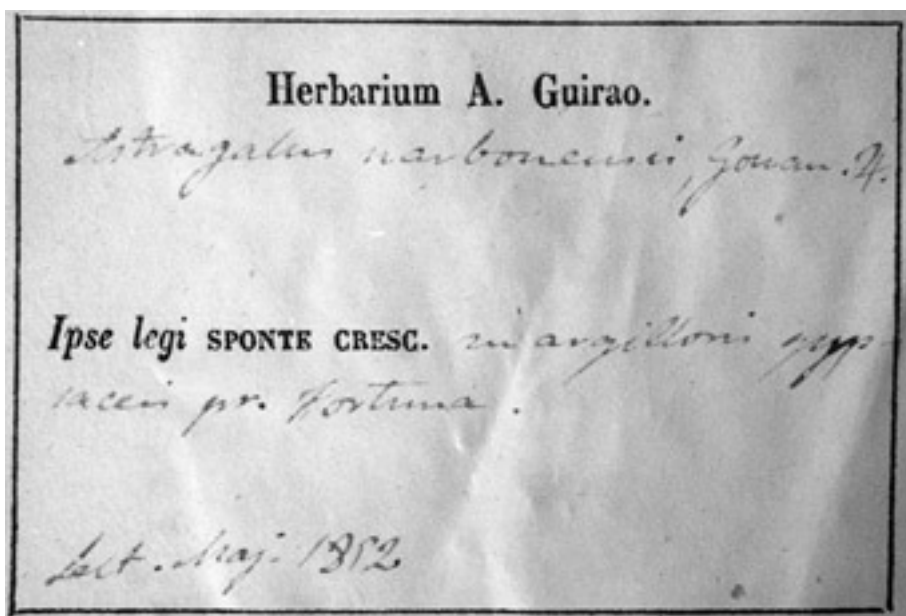 Herbarium A. Guirao.
Astragalus narbonensis, Gouan. ♃.
Ipse legi SPONTE CRESC. in argillosis gyp-
saceis pr. Fortuna.
Lect. Maj. 1852